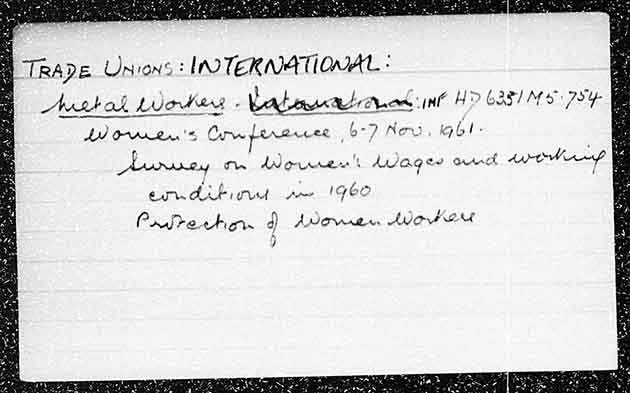 TRADE UNIONS: INTERNATIONAL:
Metal Workers. International: INF HD 6351 M5.754
Women's Conference, 6-7 Nov. 1961.
Survey on Women's Wages and working
conditions in 1960
Protection of Women Workers